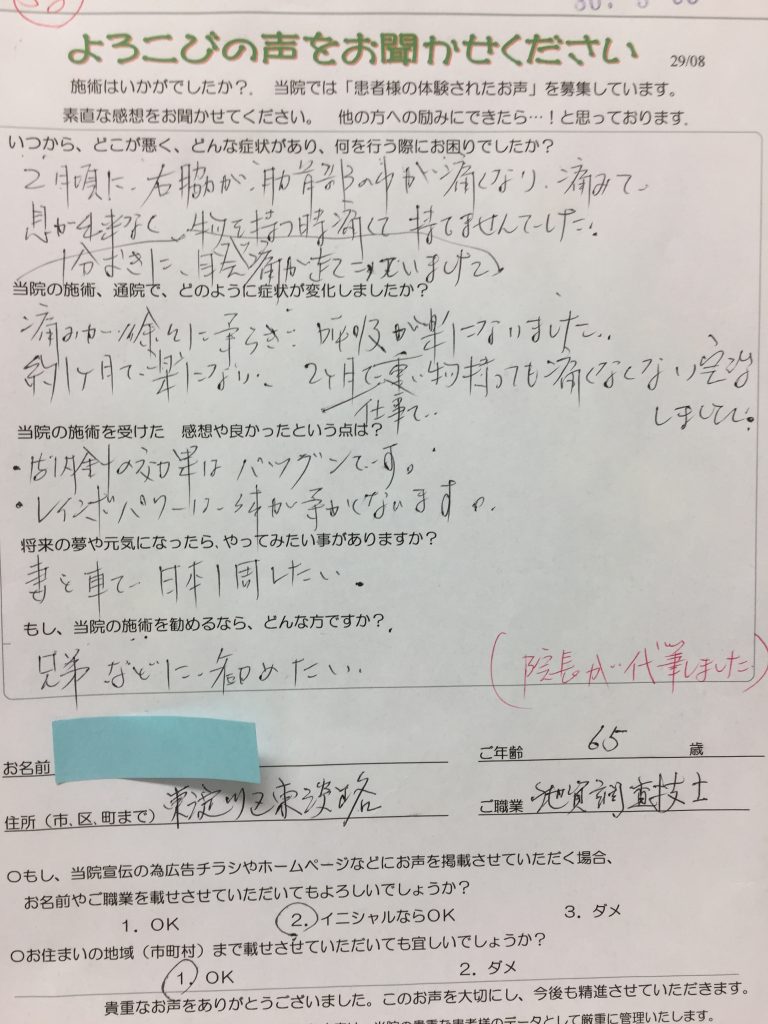 よろこびの声をお聞かせください
29/08
施術はいかがでしたか？　当院では「患者様の体験されたお声」を募集しています。
素直な感想をお聞かせてください。　他の方への励みにできたら…！と思っております.
いつから、どこが悪く、どんな症状があり、何を行う際にお困りでしたか？
2月頃に、右脇が、肋骨部の中が痛くなり、痛みで、
息が出来なく、物を持つ時痛くて持てませんでした。
1分おきに、痛がきてこっていました
当院の施術、通院で、どのように症状が変化しましたか？
痛みが徐々に和らぎ、呼吸が楽にないました。
約1ヶ月で楽にない、2ヶ月で重い物持っても痛くなくない完治
仕事で、
しました。
当院の施術を受けた　感想や良かったという点は？
・の効果はバツグンです。
・レインボーパワーは体が軽くないます。
将来の夢や元気になったら、やってみたい事がありますか？
妻と車で日本1周したい。
もし、当院の施術を勧めるなら、どんな方ですか？
兄弟などに勧めたい。
(院長が代筆しました)
お名前
ご年齢　65　歳
住所（市、区、町まで）東淀川区東淡路
ご職業　地質調査技士
○もし、当院宣伝の為広告チラシやホームページなどにお声を掲載させていただく場合、
お名前やご職業を載せさせていただいてもよろしいでしょうか？
1．OK　2．イニシャルならOK　3．ダメ
○お住まいの地域（市町村）まで載せさせていただいても宜しいでしょうか？
1．OK　2．ダメ
貴重なお声をありがとうございました。このお声を大切にし、今後も精進させていただきます。
当院の貴重な患者様のデータとして厳重に管理いたします。